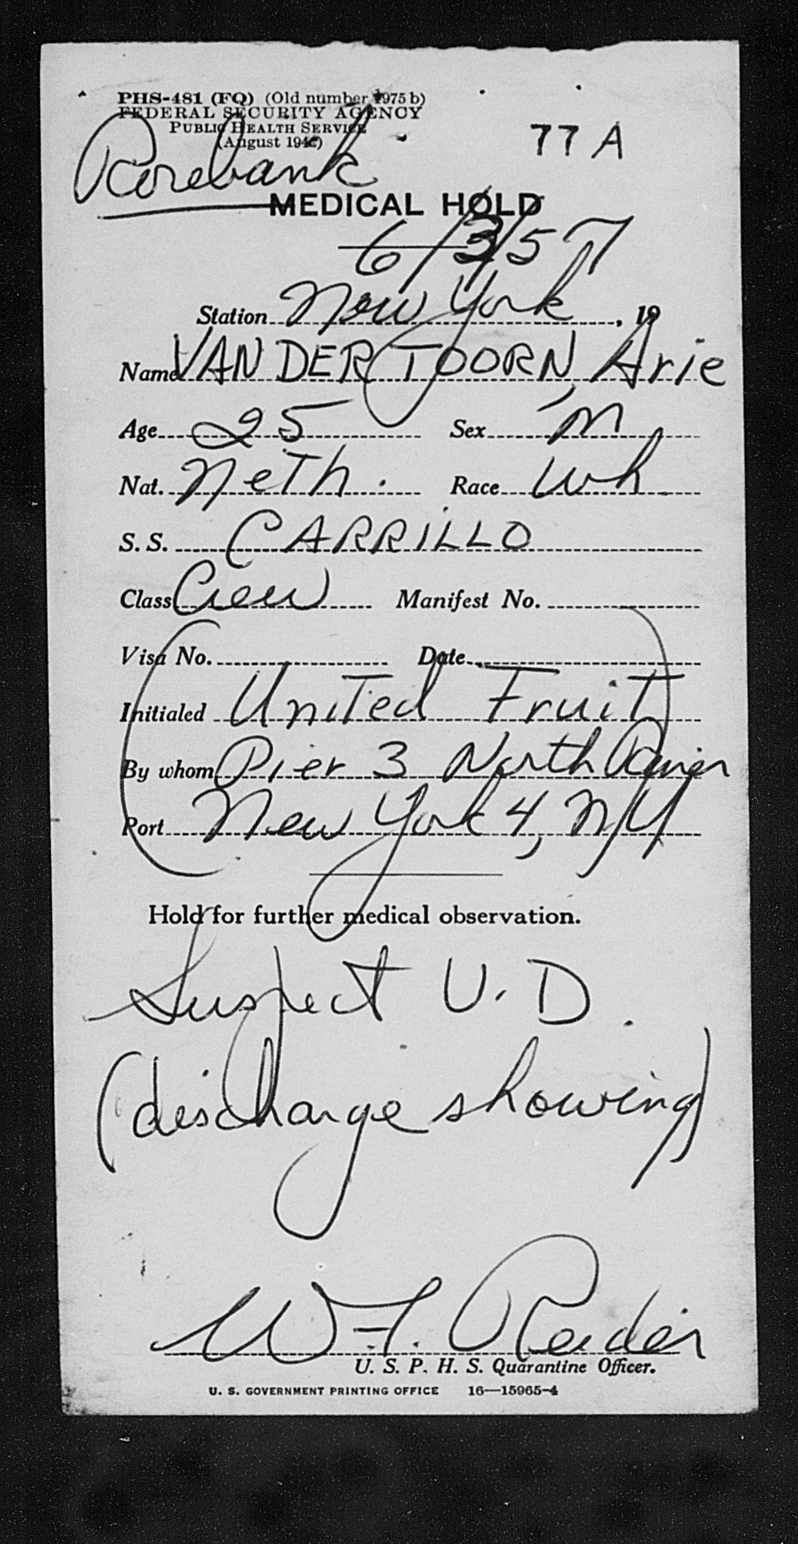 PHS-481 (FQ) (Old number 1975 b)
FEDERAL SECURITY AGENCY
PUBLIC HEALTH SERVICE
(August 194
77 A
Rosebank
MEDICAL HOLD
6/3/57
Station New York, 19
Name VAN DER TOORN, Arie
Age 25 Sex M
Nat. Neth. Race Wh.
S. S. CARRILLO
Class Crew Manifest No.
Visa No. Date
Initialed United Fruit
By whom Pier 3 North River
Port New York 4, NY
Hold for further medical observation.
Suspect V.D.
(discharge showing)
W. F. Reider
U. S. P. H. S. Quarantine Officer.
U. S. GOVERNMENT PRINTING OFFICE 16—15965-4